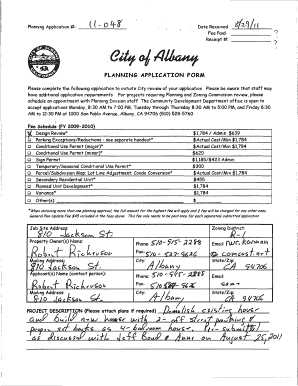 Planning Application #: 11-048
Date Received: 8/29/11
Fee Paid: ?
Receipt #: ?
City of Albany
PLANNING APPLICATION FORM
Please complete the following application to initiate City review of your application. Please be aware that staff may
have additional application requirements. For projects requiring Planning and Zoning Commission review, please
schedule an appointment with Planning Division staff. The Community Development Department office is open to
accept applications Monday, 8:30 AM to 7:00 PM, Tuesday through Thursday 8:30 AM to 5:00 PM, and Friday 8:30
AM to 12:30 PM at 1000 San Pablo Avenue, Albany, CA 94706 (510) 528-5760
Fee Schedule (FY 2009-2010)
Design Review* $1,784 / Admin $639
Parking Exceptions/Reductions - see separate handout* $Actual Cost/Min $1,784
Conditional Use Permit (major)* $Actual Cost/Min $1,784
Conditional Use Permit (minor)* $620
Sign Permit $1,185/$423 Admin
Temporary/Seasonal Conditional Use Permit* $300
Parcel/Subdivision Map; Lot Line Adjustment; Condo Conversion* $Actual Cost/Min $1,784
Secondary Residential Unit* $455
Planned Unit Development* $1,784
Variance* $1,784
Other(s): $
Job Site Address: 810 Jackson St. Zoning District: R-1
Property Owner(s) Name: Robert Rickerson Phone: 510-515-2288 Email:
Fax:
Mailing Address: 810 Jackson St. City: Albany State/Zip: CA 94706
Applicant(s) Name Phone: 510-515-2288 Email:
Robert Rickerson Fax:
Mailing Address: 810 Jackson St. City: Albany State/Zip: CA 94706
PROJECT DESCRIPTION (Please attach plans if required) Demolish existing house
and Build new house with 2 off street parking &
proper set backs as 4-bedroom house. Pre-submitted
as discussed with Jeff Bond & Anne on August 25, 2011